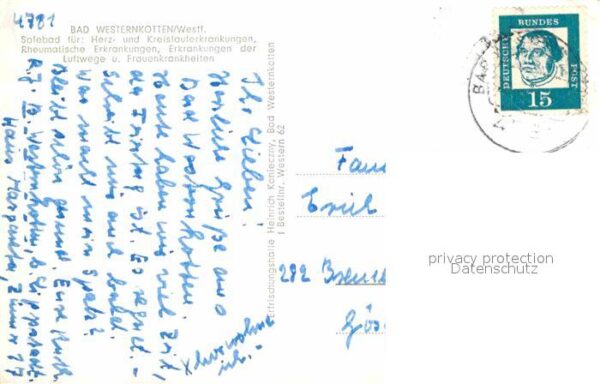 4781
BAD WESTERNKOTTEN/Westf.
Solebad für: Herz- und Kreislauferkrankungen,
Rheumatische Erkrankungen, Erkrankungen der
Luftwege u. Frauenkrankheiten
Ihr Lieben!
Herzliche Grüße aus
Bad Westernkotten.
Heute haben wir viel Zeit,
da Freitag ist. Es regnet. -
Schreibt mir mal bald.
Was macht mein Spatz?
Bleibt schön gesund. Eure Ruth.
Bad Westernkotten, b. Lippstadt
Haus Margareta, Zimmer 17
Erfrischungshalle Heinrich Konieczny, Bad Westernkotten
Bestellnr. Western 62
DEUTSCHE
BUNDES
POST
15
BAD
Fam
282 Bremen
privacy protection
Datenschutz